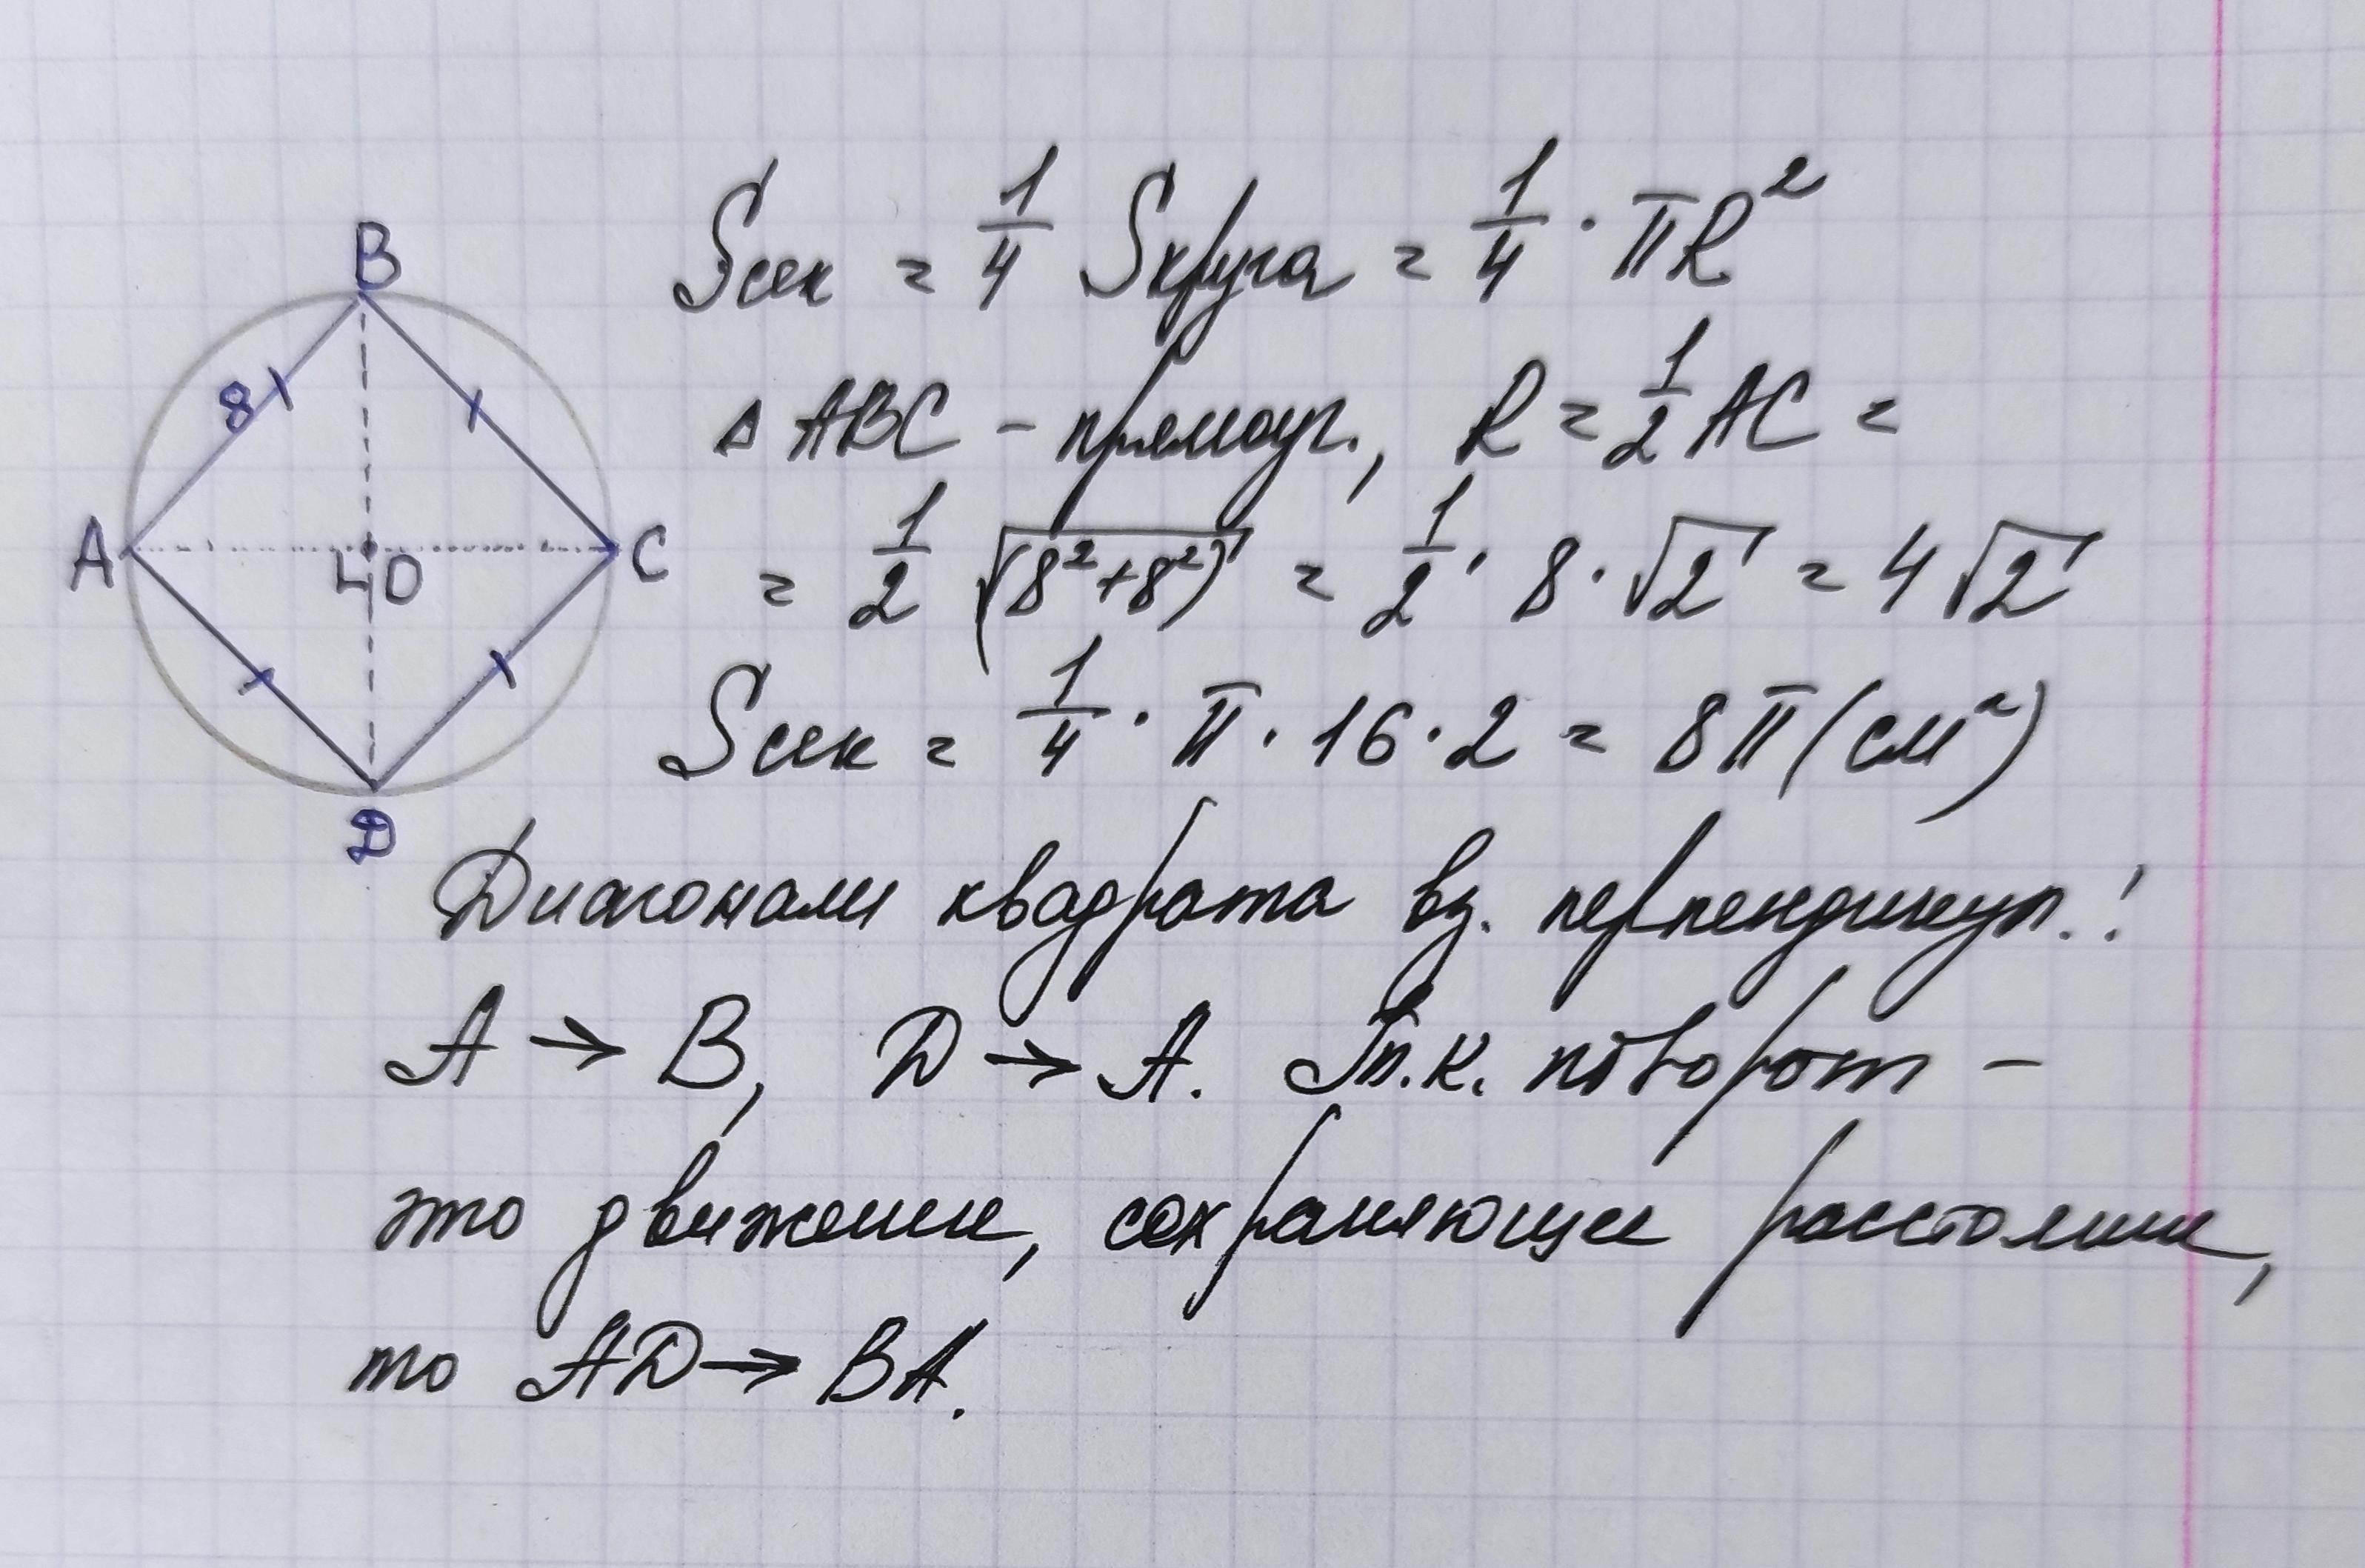 B
8
A
O
C
D
Sсек = 1/4 Sкруга = 1/4 · πR²
△ ABC - прямоуг., R = 1/2 AC =
= 1/2 √(8²+8²) = 1/2 · 8 · √2 = 4√2
Sсек = 1/4 · π · 16 · 2 = 8π (см²)
Диагонали квадрата вз. перпендикул.!
A → B, D → A. Т.к. поворот -
это движение, сохраняющее расстояние,
то AD → BA.